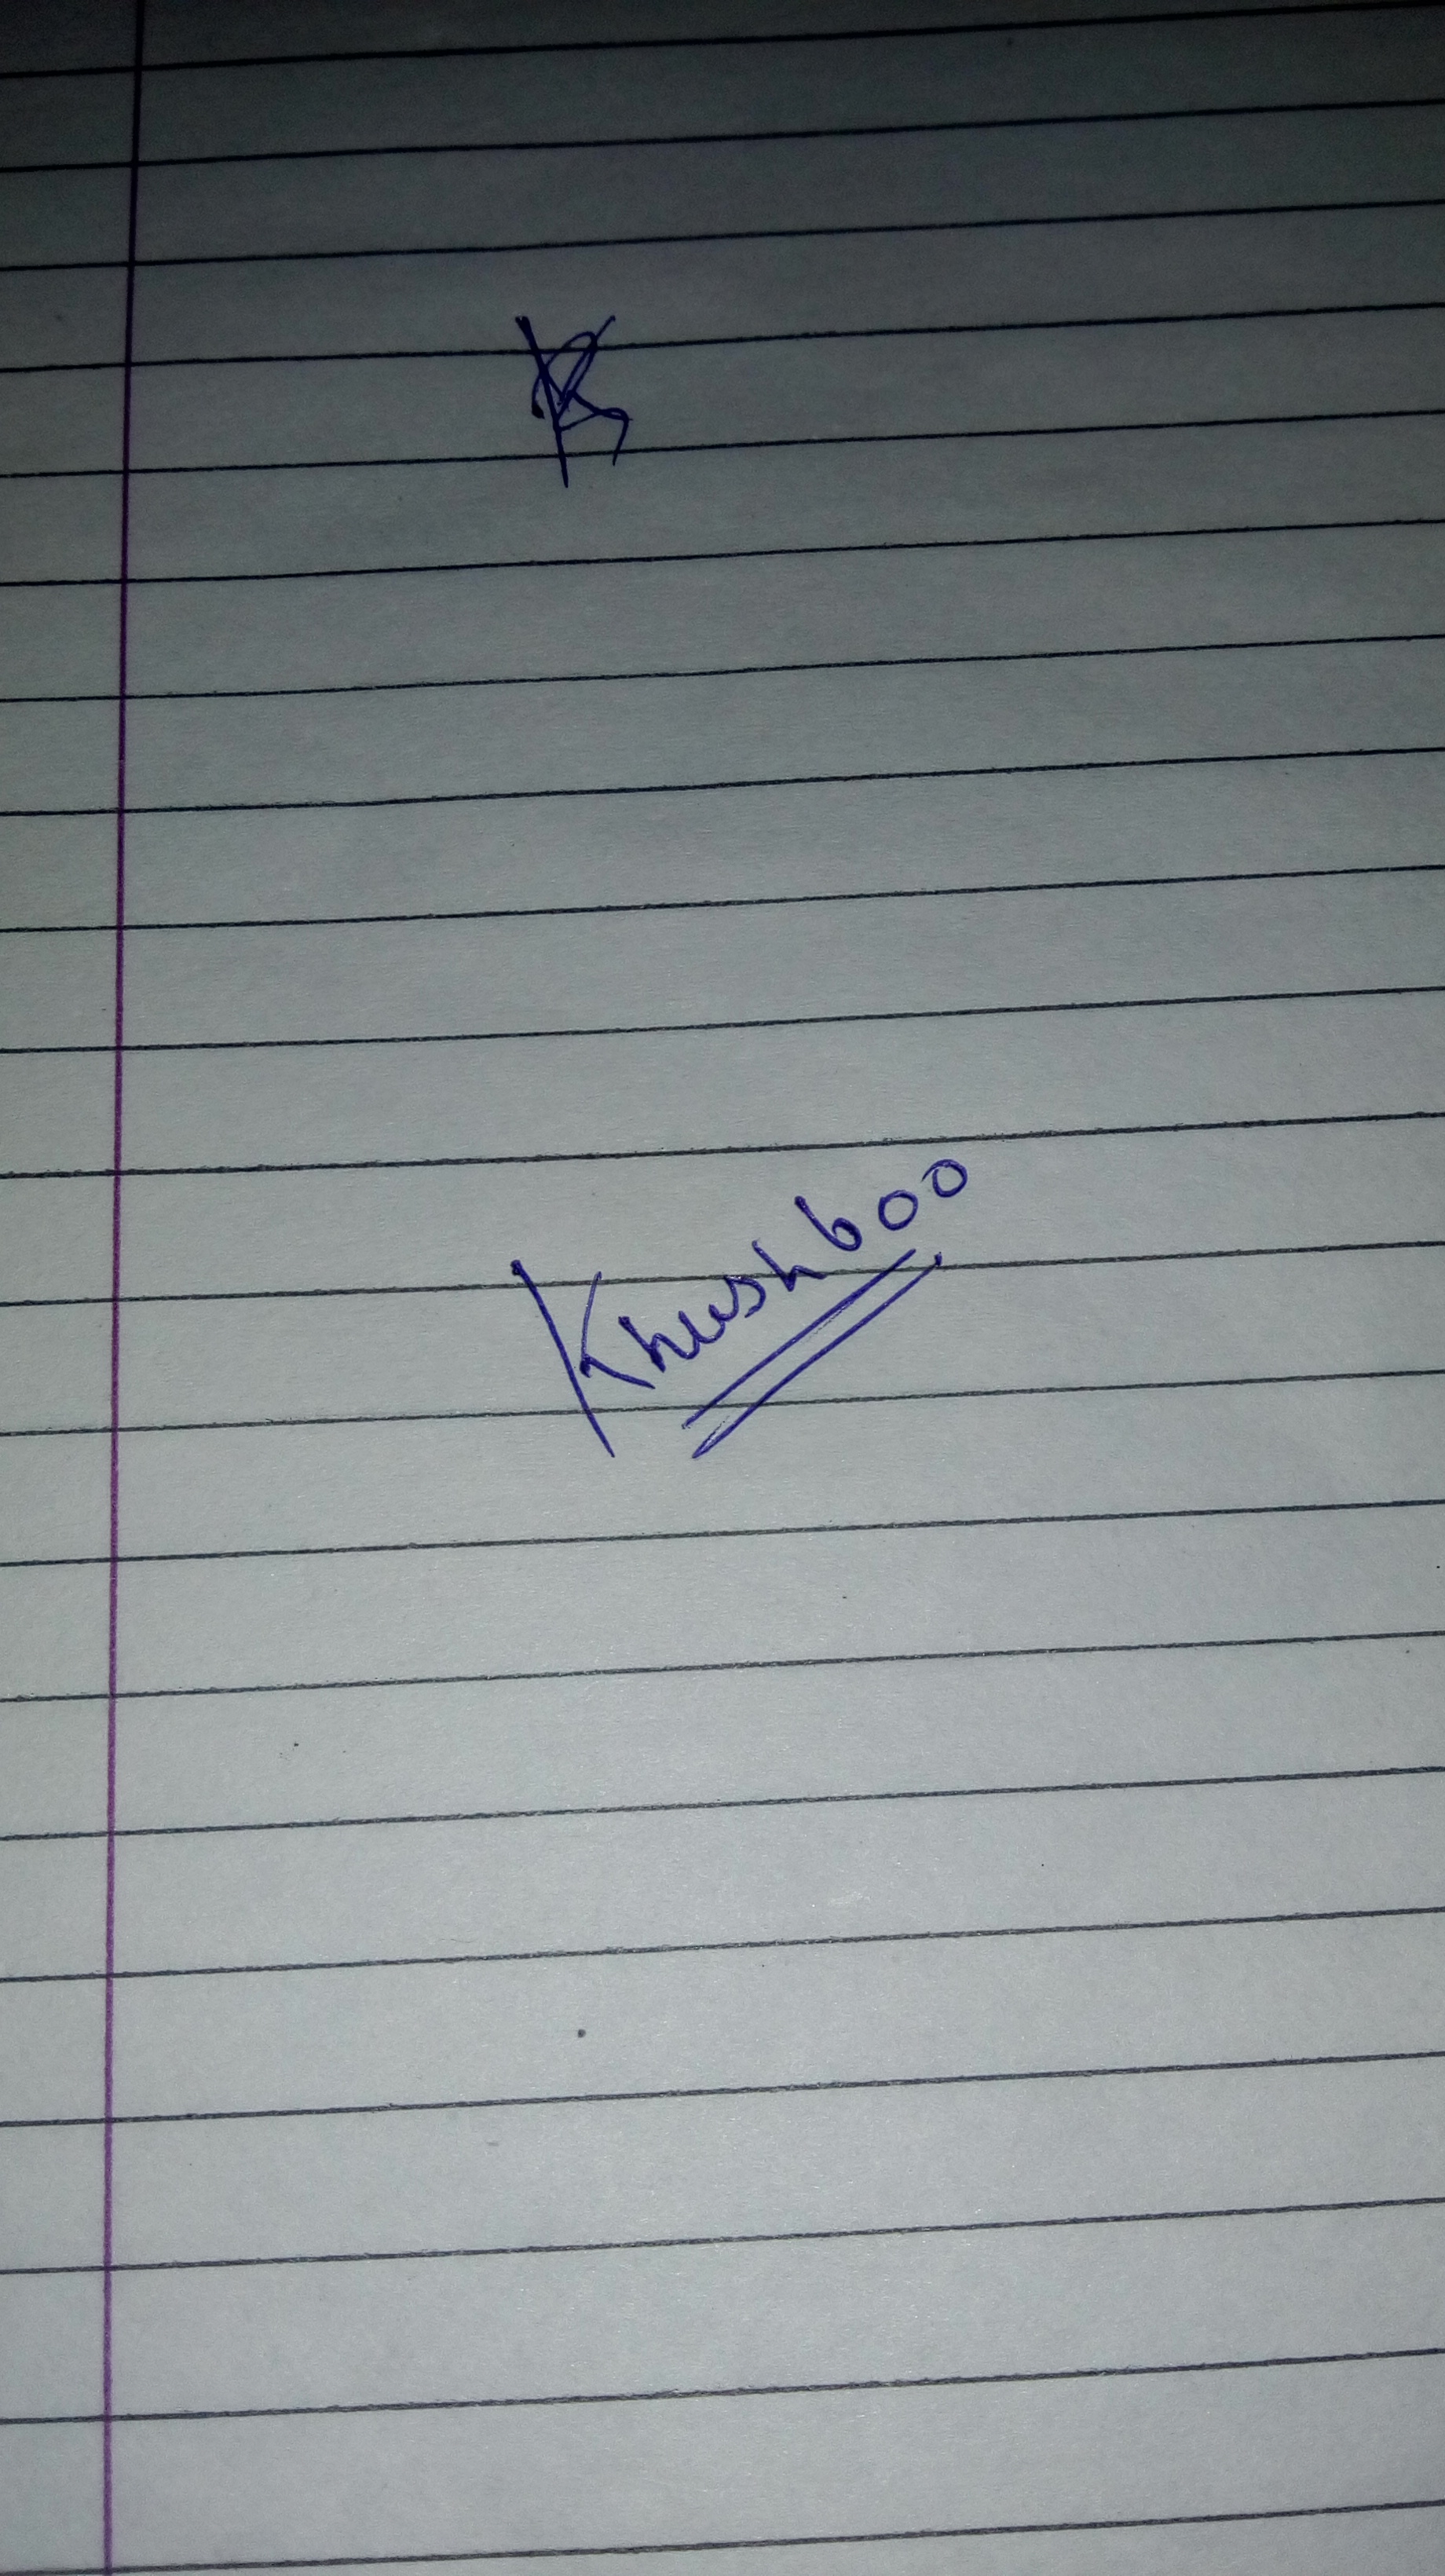 K
Khushboo